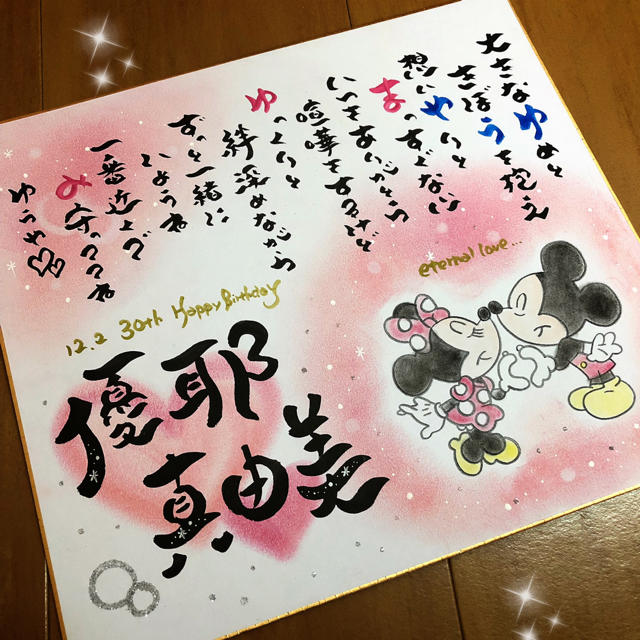 大きなゆめと
きぼうを抱え
想いやりと
まっすぐない
いつもありがとう
喧嘩をするけど
ゆっくりと
絆深めながら
ずっと一緒に
いようね
一番近くで
み守っててね
ゆうや
eternal love...
12.2 30th Happy Birthday
優耶
真由美